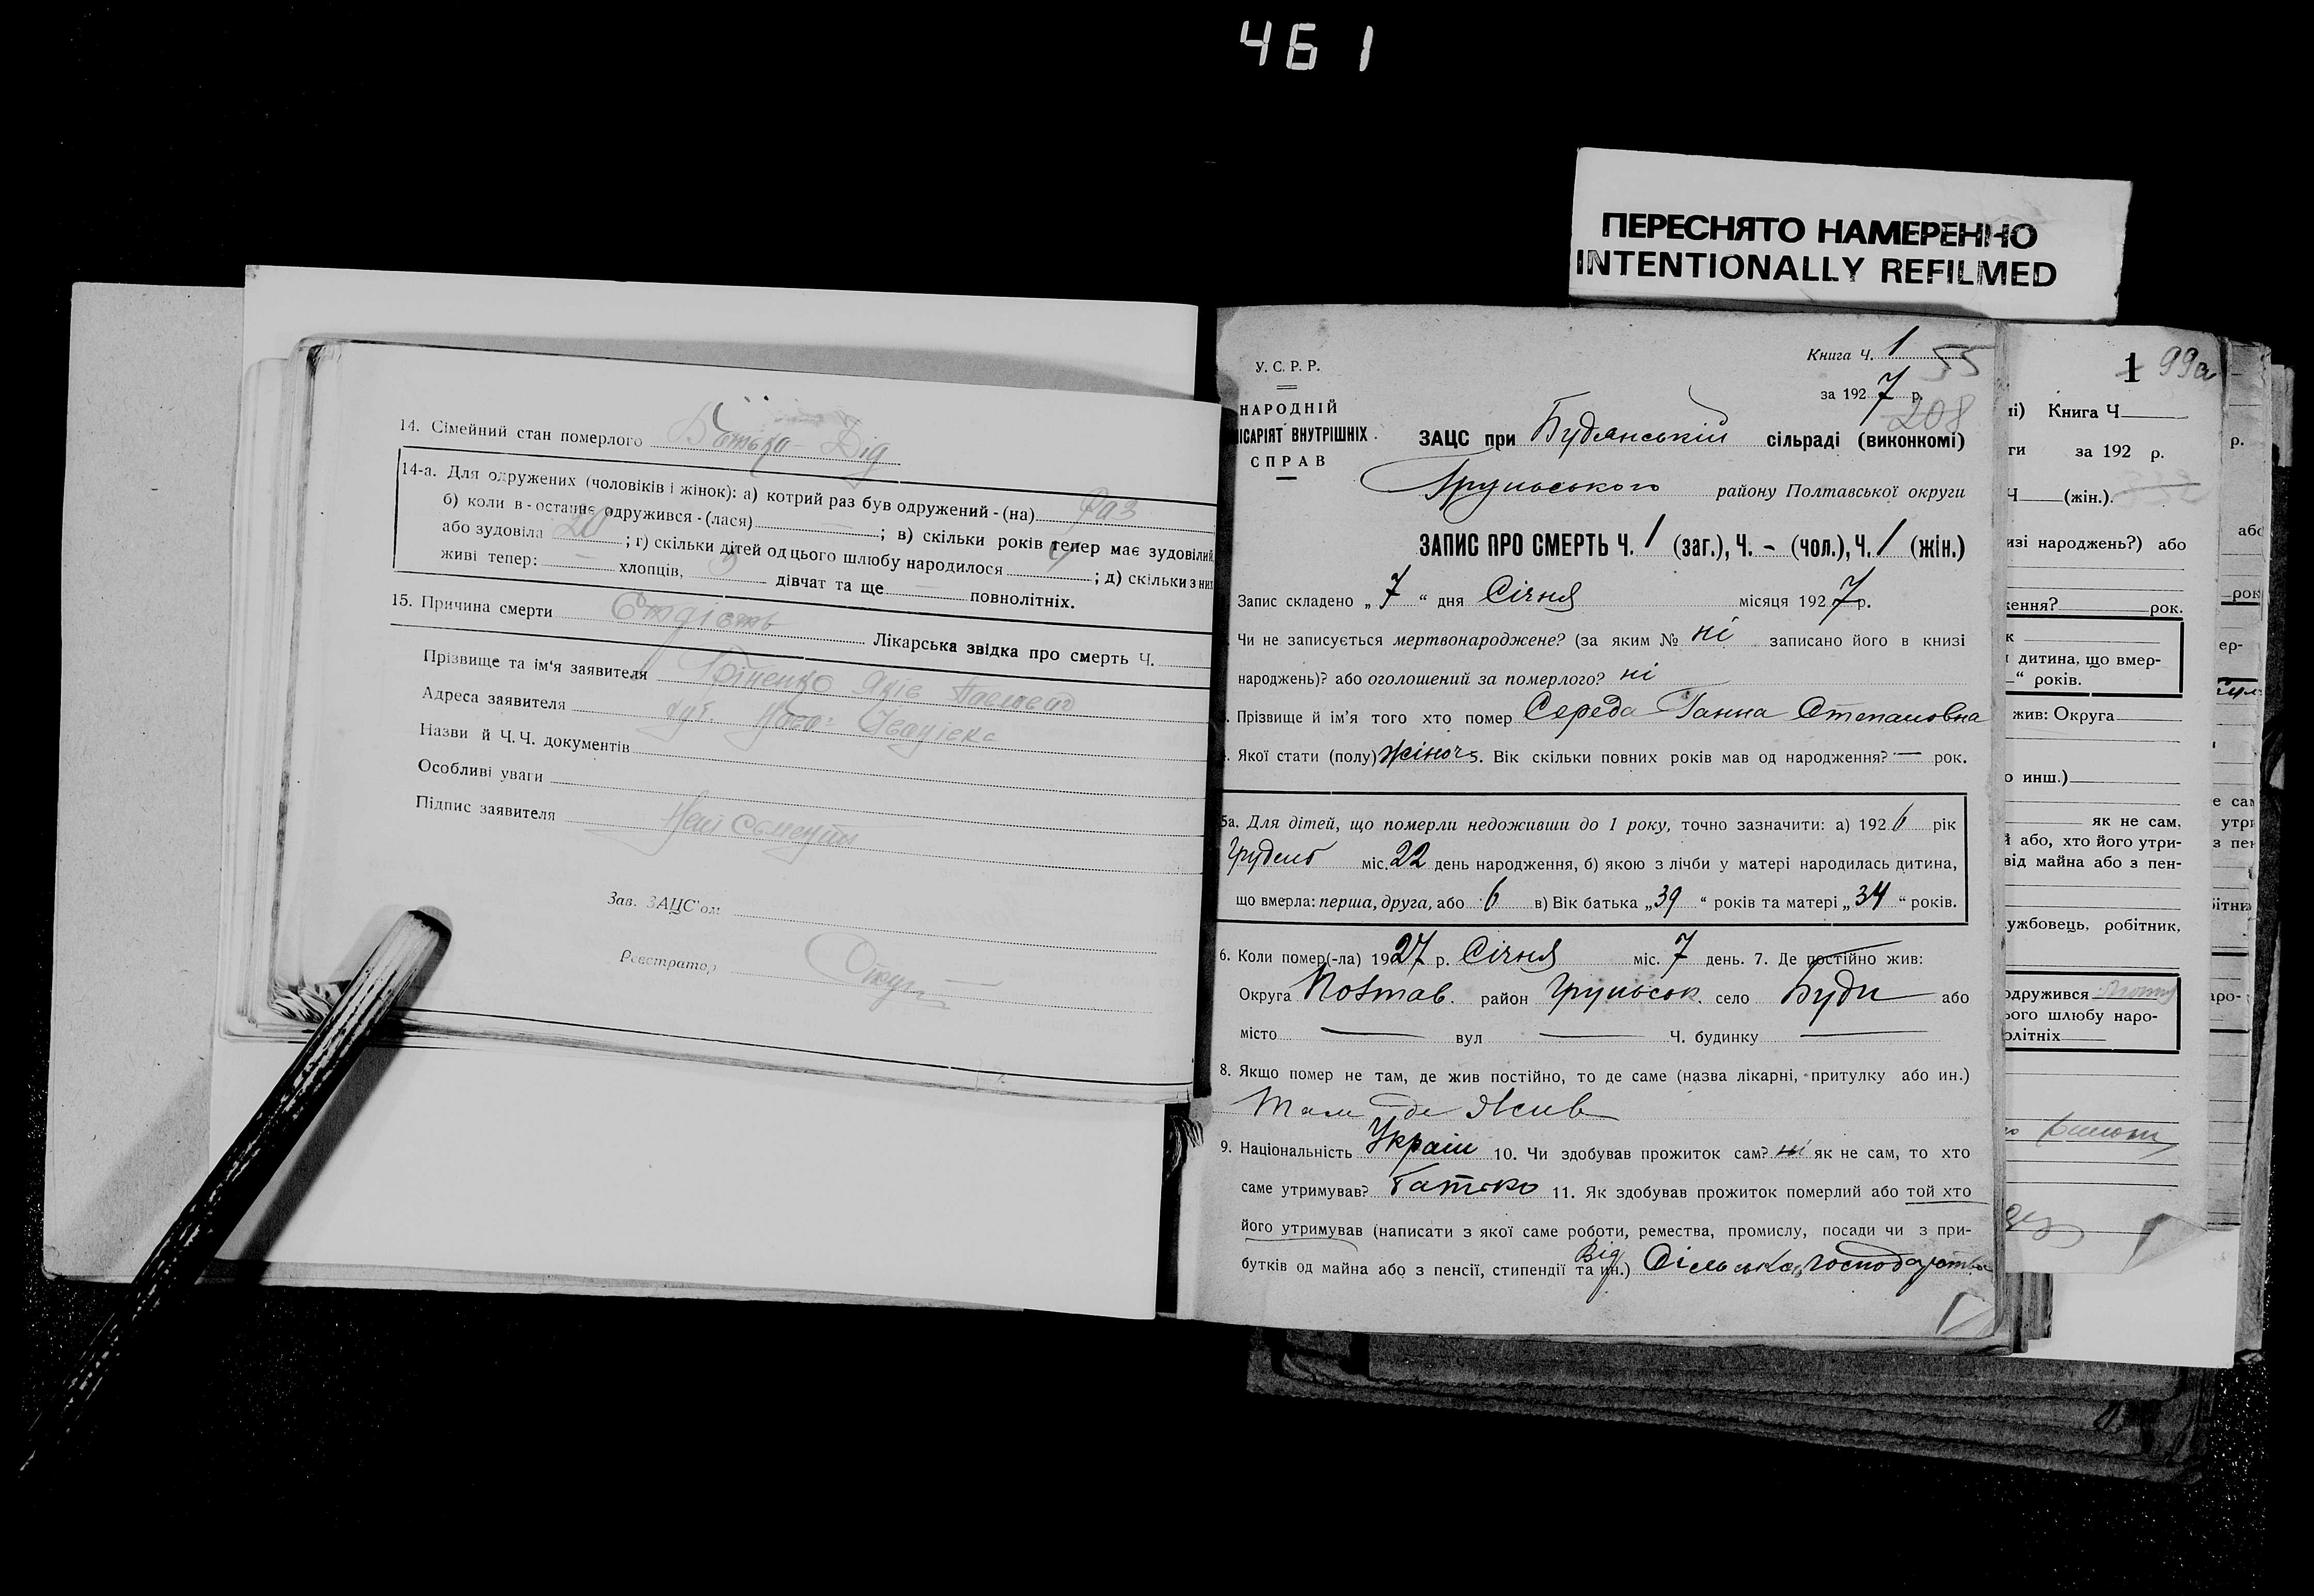 461
ПЕРЕСНЯТО НАМЕРЕННО
INTENTIONALLY REFILMED
14. Сімейний стан померлого Батько - Дід
14-а. Для одружених (чоловіків і жінок): а) котрий раз був одружений - (на) раз
б) коли в - останнє одружився - (лася) — ; в) скільки років тепер має зудовілий
або зудовіла 20 ; г) скільки дітей од цього шлюбу народилося ; д) скільки з них
живі тепер: — хлопців, 3 дівчат та ще — повнолітніх.
15. Причина смерти Лікарська звідка про смерть Ч.
Прізвище та ім'я заявителя Яків
Адреса заявителя
Назви й Ч. Ч. документів
Особливі уваги
Підпис заявителя
Зав. ЗАЦС'ом
Реєстратор
У. С. Р. Р.
НАРОДНІЙ
ІСАРІЯТ ВНУТРІШНІХ
СПРАВ
Книга Ч. 1 55
за 192 7 р.
208
ЗАЦС при Будянській сільраді (виконкомі)
Груньського району Полтавської округи
ЗАПИС ПРО СМЕРТЬ Ч. 1 (заг.), Ч. - (чол.), Ч. 1 (жін.)
Запис складено „ 7 “ дня Січня місяця 192 7 р.
Чи не записується мертвонароджене? (за яким № ні записано його в книзі
народжень)? або оголошений за померлого? ні
Прізвище й ім'я того хто помер Середа Ганна Степановна
Якої стати (полу) жіноч 5. Вік скільки повних років мав од народження? — рок.
5а. Для дітей, що померли недоживши до 1 року, точно зазначити: а) 192 6 рік
Грудень міс. 22 день народження, б) якою з лічби у матері народилась дитина,
що вмерла: перша, друга, або 6 в) Вік батька „ 39 “ років та матері „ 34 “ років.
6. Коли помер(-ла) 1927 р. Січня міс. 7 день. 7. Де постійно жив:
Округа Полтав. район Груньськ. село Буди або
місто — вул — Ч. будинку —
8. Якщо помер не там, де жив постійно, то де саме (назва лікарні, притулку або ин.)
Там де жив
9. Національність Україн 10. Чи здобував прожиток сам? ні як не сам, то хто
саме утримував? Батько 11. Як здобував прожиток померлий або той хто
його утримував (написати з якої саме роботи, ремества, промислу, посади чи з при-
бутків од майна або з пенсії, стипендії та ин.) Від Сільського господарства
1 99а
і) Книга Ч
ги за 192 р.
Ч (жін.).
изі народжень?) або
ження? рок.
к
дитина, що вмер-
“ років.
жив: Округа
о инш.)
як не сам,
й або, хто його утри-
від майна або з пен-
ужбовець, робітник,
одружився
ього шлюбу наро-
олітніх
р.
або
рок
ер-
е сам
утри
з пен
ітни
аро-